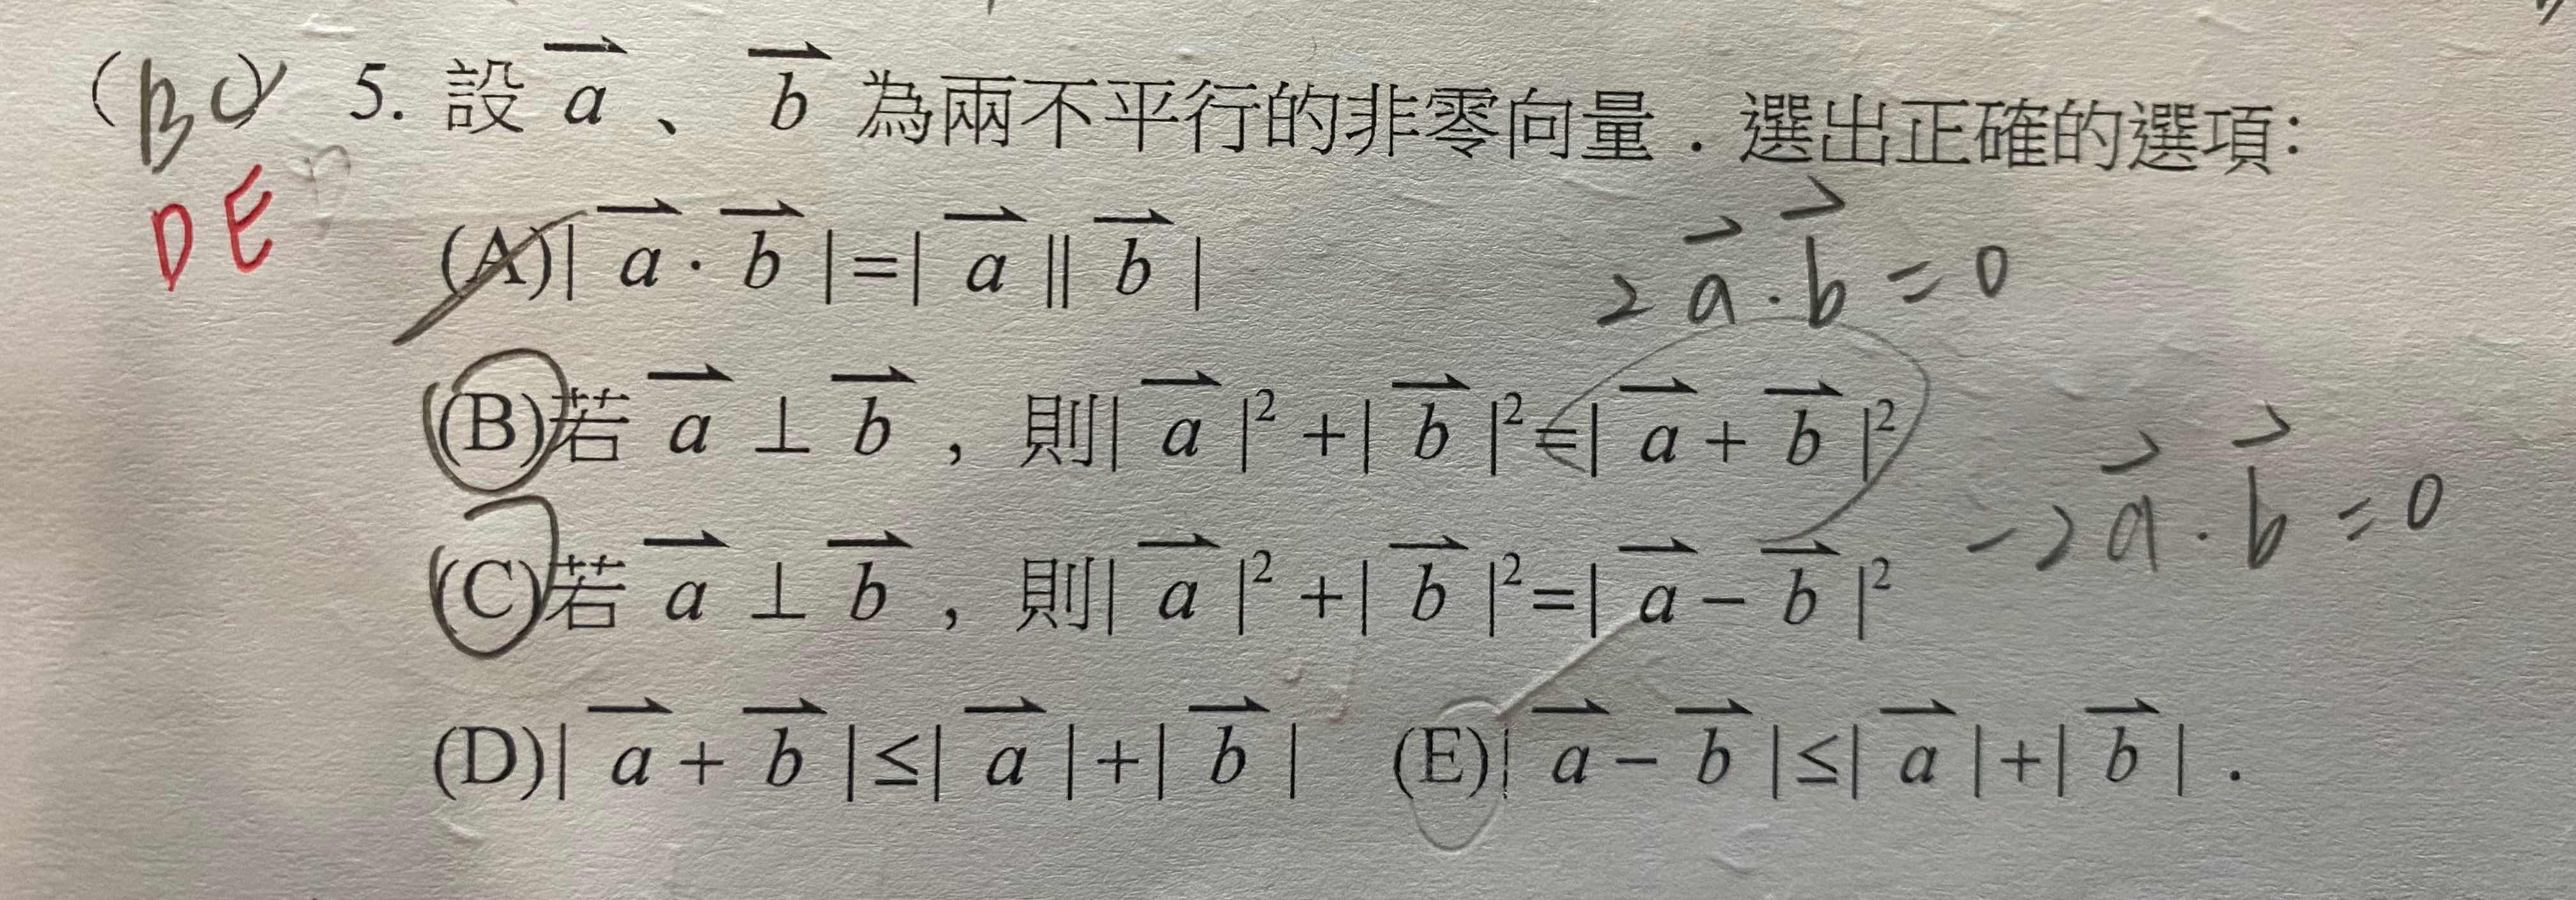 (BC) 5. 設 a⃗ 、 b⃗ 為兩不平行的非零向量．選出正確的選項：
DE
(A)| a⃗ · b⃗ |=| a⃗ || b⃗ |
2a⃗·b⃗=0
(B)若 a⃗ ⊥ b⃗ ，則| a⃗ |²+| b⃗ |²=| a⃗ + b⃗ |²
-2a⃗·b⃗=0
(C)若 a⃗ ⊥ b⃗ ，則| a⃗ |²+| b⃗ |²=| a⃗ − b⃗ |²
(D)| a⃗ + b⃗ |≤| a⃗ |+| b⃗ | (E)| a⃗ − b⃗ |≤| a⃗ |+| b⃗ |．